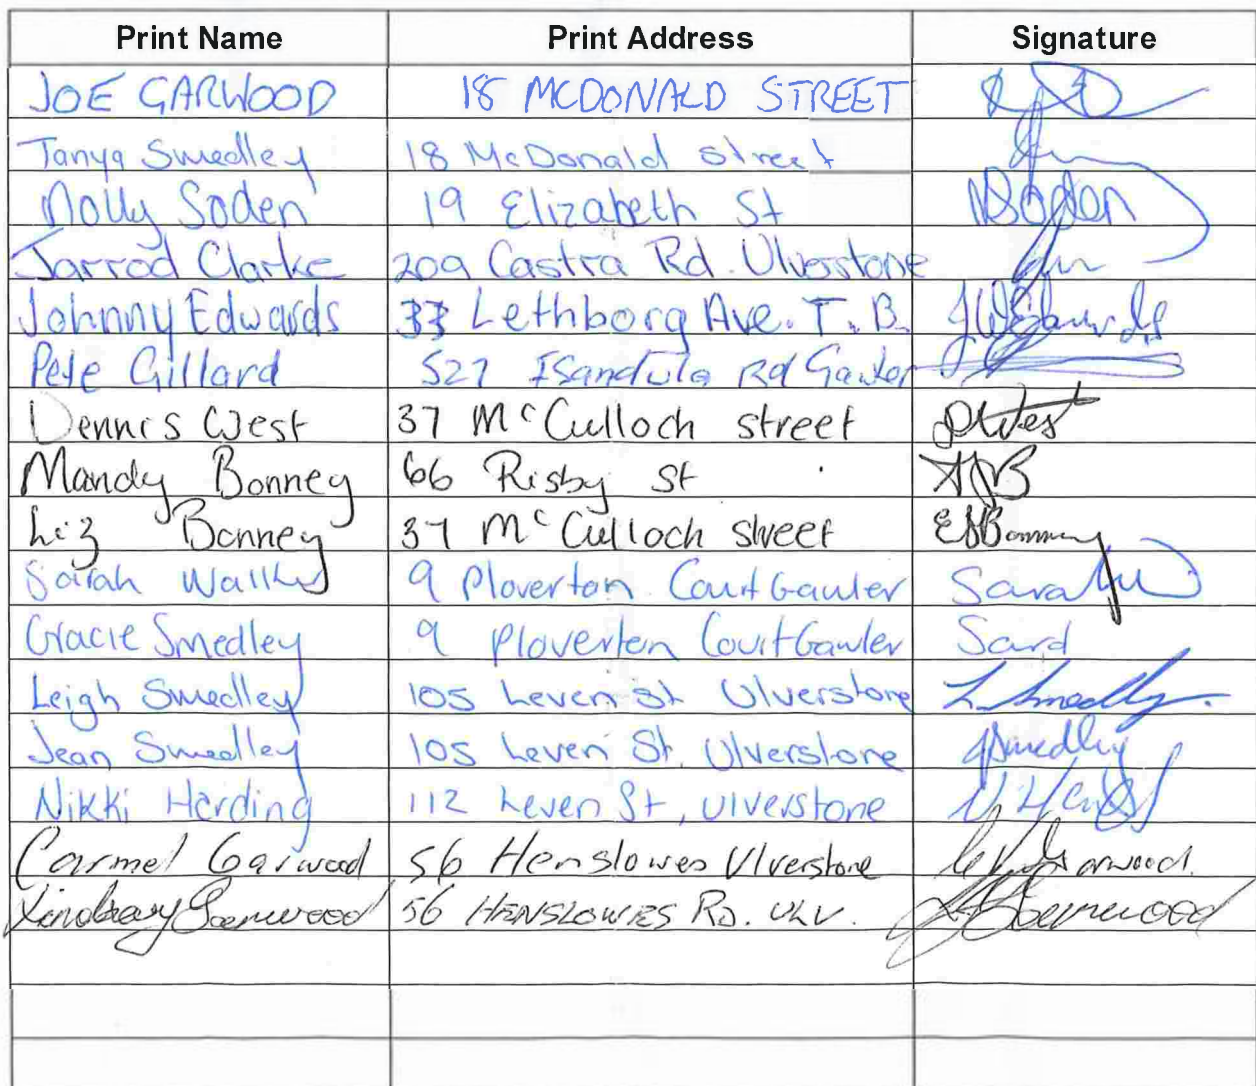 Print Name Print Address Signature
JOE GARWOOD 18 MCDONALD STREET
Tanya Smedley 18 McDonald street
Molly Soden 19 Elizabeth St MSoden
Jarrod Clarke 209 Castra Rd. Ulverstone
Johnny Edwards 33 Lethborg Ave. T. B. JWEdwards
Pete Gillard 527 Isandula Rd Gawler
Dennis West 37 McCulloch street DWest
Mandy Bonney 66 Risby St
Liz Bonney 37 McCulloch street EJBonney
Sarah Walker 9 Ploverton Court Gawler Sarah W
Gracie Smedley 9 Ploverton Court Gawler
Leigh Smedley 105 Leven St Ulverstone L Smedley.
Jean Smedley 105 Leven St, Ulverstone JSmedley
Nikki Harding 112 Leven St, Ulverstone
Carmel Garwood 56 Henslowes Ulverstone Garwood.
Lindsay Garwood 56 HENSLOWES RD. ULV. Garwood